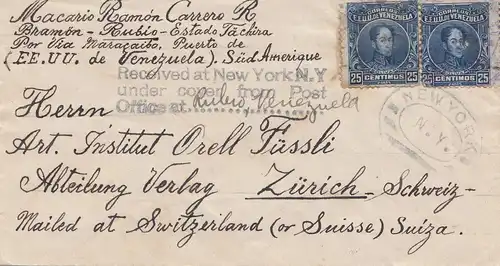 Macario Ramón Carrero R
Bramón - Rubio - Estado Táchira
Por Via Maracaibo, Puerto de
(EE.UU. de Venezuela). Süd Amerique
CORREOS
EE.UU. DE VENEZUELA
25 CENTIMOS 25
CORREOS
EE.UU. DE VENEZUELA
25 CENTIMOS 25
Received at New York N.Y
under cover from Post
Office at Rubio, Venezuela
NEW YORK
N.Y.
Herrn
Art. Institut Orell Füssli
Abteilung Verlag Zürich - Schweiz -
Mailed at Switzerland (or Suisse) Suiza.